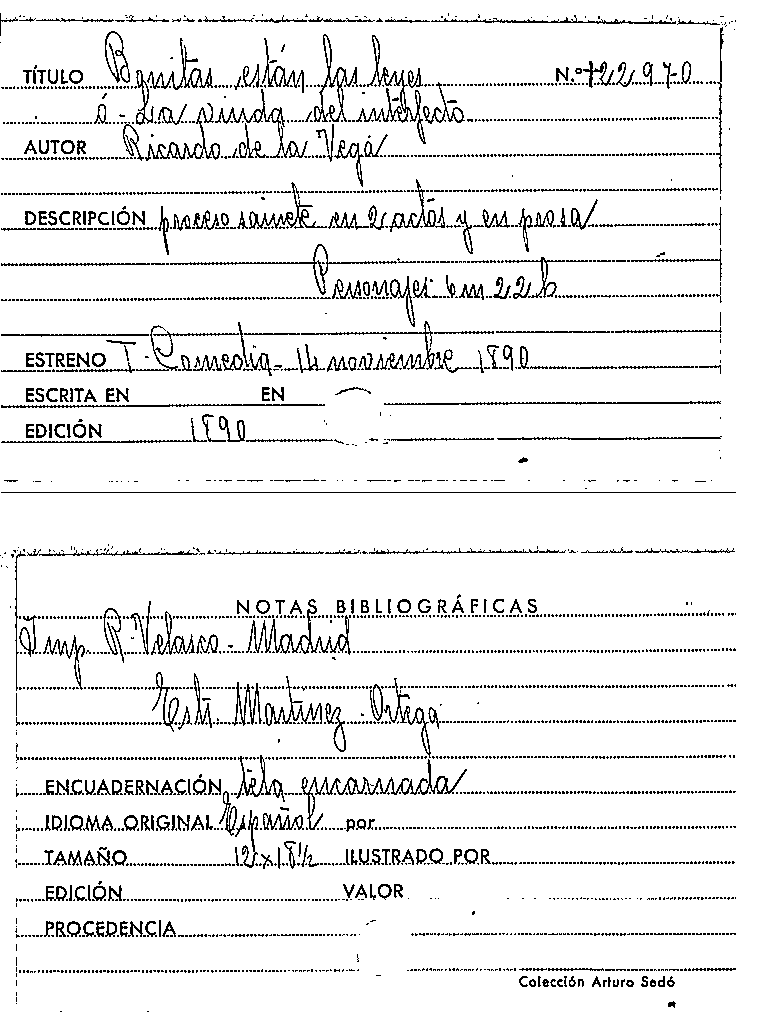 TÍTULO Bonitas están las leyes N.º 122970
ó - La viuda del interfecto
AUTOR Ricardo de la Vega
DESCRIPCIÓN proceso sainete en 2 actos y en prosa
Personajes 6 m 22 h
ESTRENO T. Comedia - 14 noviembre 1890
ESCRITA EN EN
EDICIÓN 1890
NOTAS BIBLIOGRÁFICAS
Imp. R. Velasco - Madrid
Martinez - Ortega
ENCUADERNACIÓN tela encarnada
IDIOMA ORIGINAL Español por
TAMAÑO 12 x 18½ ILUSTRADO POR
EDICIÓN VALOR
PROCEDENCIA
Colección Arturo Sedó